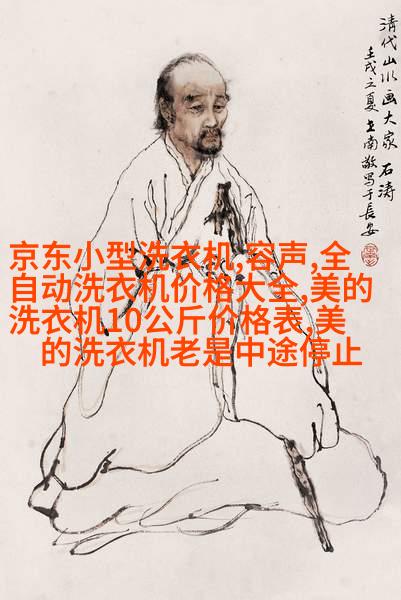 清代山水画大家 石涛
壬戌之夏 王南敬写于长安
京东小型洗衣机,容声,全
自动洗衣机价格大全,美的
洗衣机10公斤价格表,美
的洗衣机老是中途停止